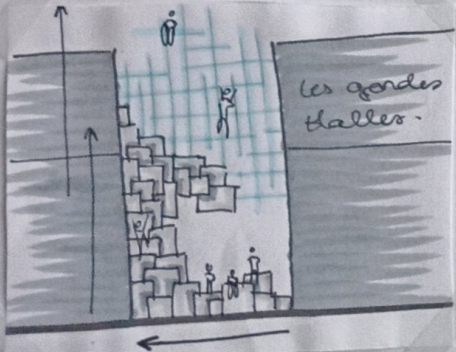 Les gordes
Halles.